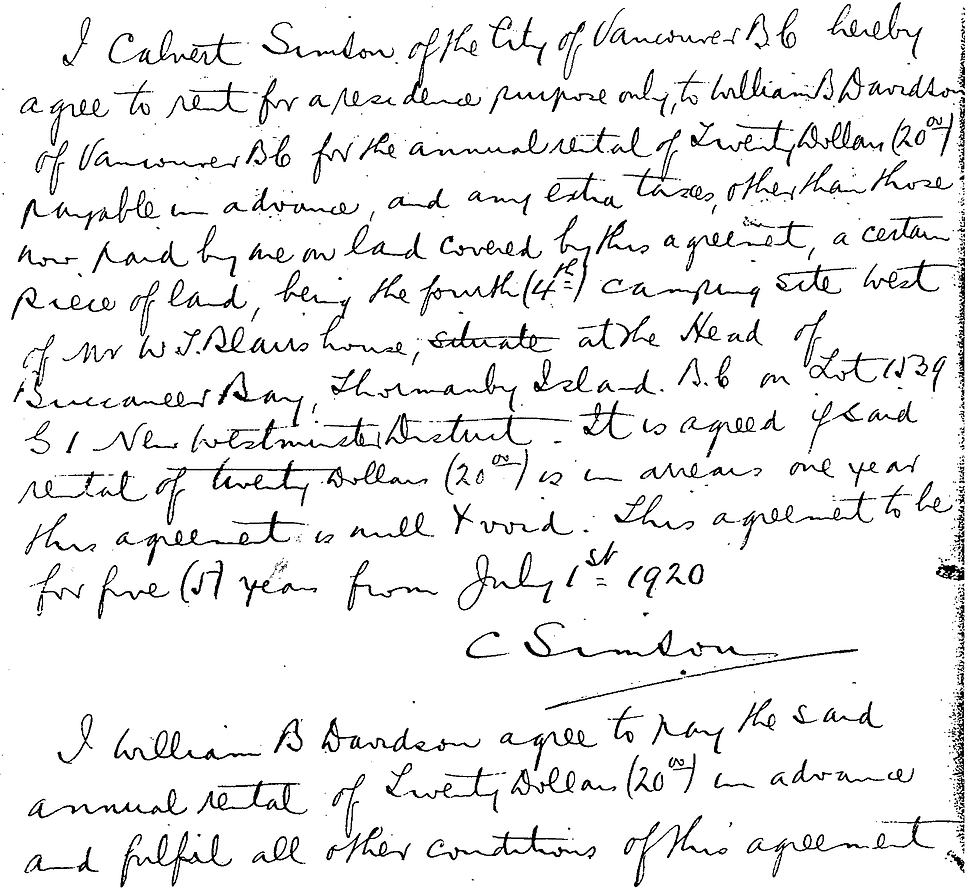 I Calvert Simson of the City of Vancouver B C hereby
agree to rent for a residence purpose only, to William B Davidson
of Vancouver B C for the annual rental of Twenty Dollars (20⁰⁰)
payable in advance, and any extra taxes, other than those
now paid by me on land covered by this agreemet, a certain
piece of land, being the fourth (4th) camping site west
of Mr W. T. Blairs house, situate at the Head of
Buccaneer Bay, Thormanby Island. B.C on Lot 1539
G 1 New Westminster District. It is agreed if said
rental of twenty Dollars (20⁰⁰) is in arrears one year
this agreement is null & void. This agreement to be
for five (5) years from July 1st 1920
C Simson
I William B Davidson agree to pay the said
annual rental of Twenty Dollars (20⁰⁰) in advance
and fulfil all other conditions of this agreement